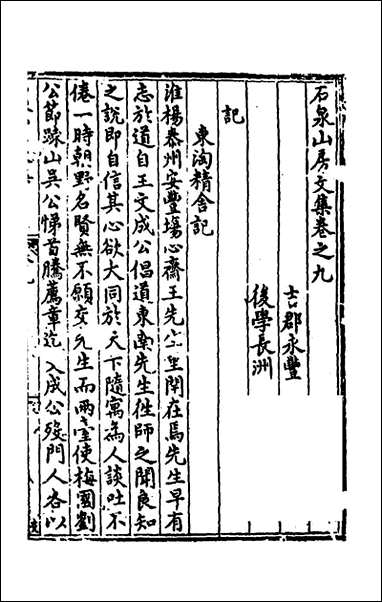 石泉山房文集卷之九
吉郡永豐
後學長洲
記
東淘精舍記
淮楊泰州安豐塲心齋王先生里閈在焉先生早有
志於道自王文成公倡道東南先生徃師之聞良知
之說即自信其心欲大同於天下隨寓為人談吐不
倦一時朝野名賢無不願交先生而兩臺使梅國劉
公節踈山吳公悌首騰薦章迄文成公殁門人各以